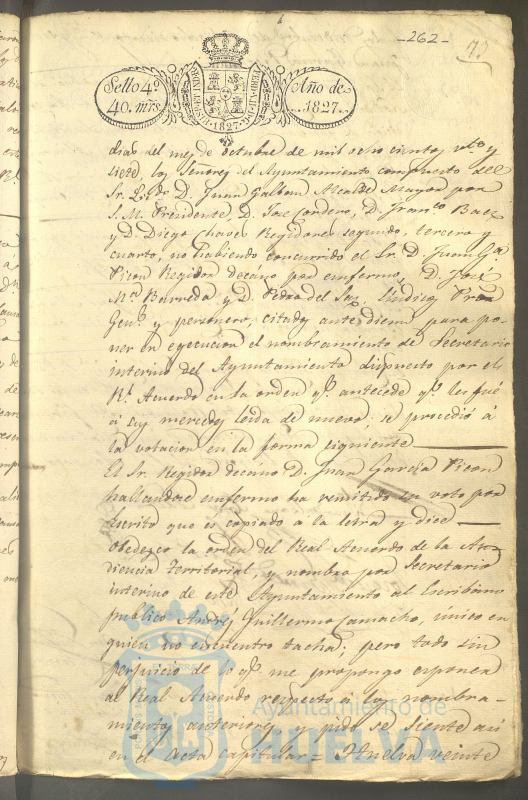 -262-
Sello 4º
40. mrs.
Año de
1827.
dias del mes de octubre de mil ocho cientos vte y
siete, los Señores del Ayuntamiento compuesto del
Sr. Ldo D. Juan Galban Alcalde Mayor por
S. M. Presidente, D. Jose Cordero, D. Franco Baez
y D. Diego Chaves Regidores segundo, tercero y
cuarto, no habiendo concurrido el Sr. D. Juan Ga
Picon Regidor decano por enfermo, D. José
Ma Barreda y D. Pedro del Saz, Sindico Pror
Genl. y personero, citados ante diem para po-
ner en egecucion el nombramiento de Secretario
interino del Ayuntamiento dispuesto por el
Rl Acuerdo en la orden qe. antecede qe. les fué
á sus mercedes leida de nuevo; se procedió á
la votacion en la forma siguiente
El Sr. Regidor decáno D. Juan Garcia Picon
hallandose enfermo ha remitido su voto por
escrito que es copiado a la letra y dice
Obedezco la orden del Real Acuerdo de la Au-
diencia territorial, y nombro por Secretario
interino de este Ayuntamiento al Escribano
publico Andres Guillermo Camacho, único en
quien no encuentro tacha; pero todo sin
perjuicio de lo qe. me propongo exponer
al Real Acuerdo respecto a los nombra-
mientos anteriores y pido se siente asi
en el Acta capitular = Huelva veinte
Ayuntamiento de
HUELVA